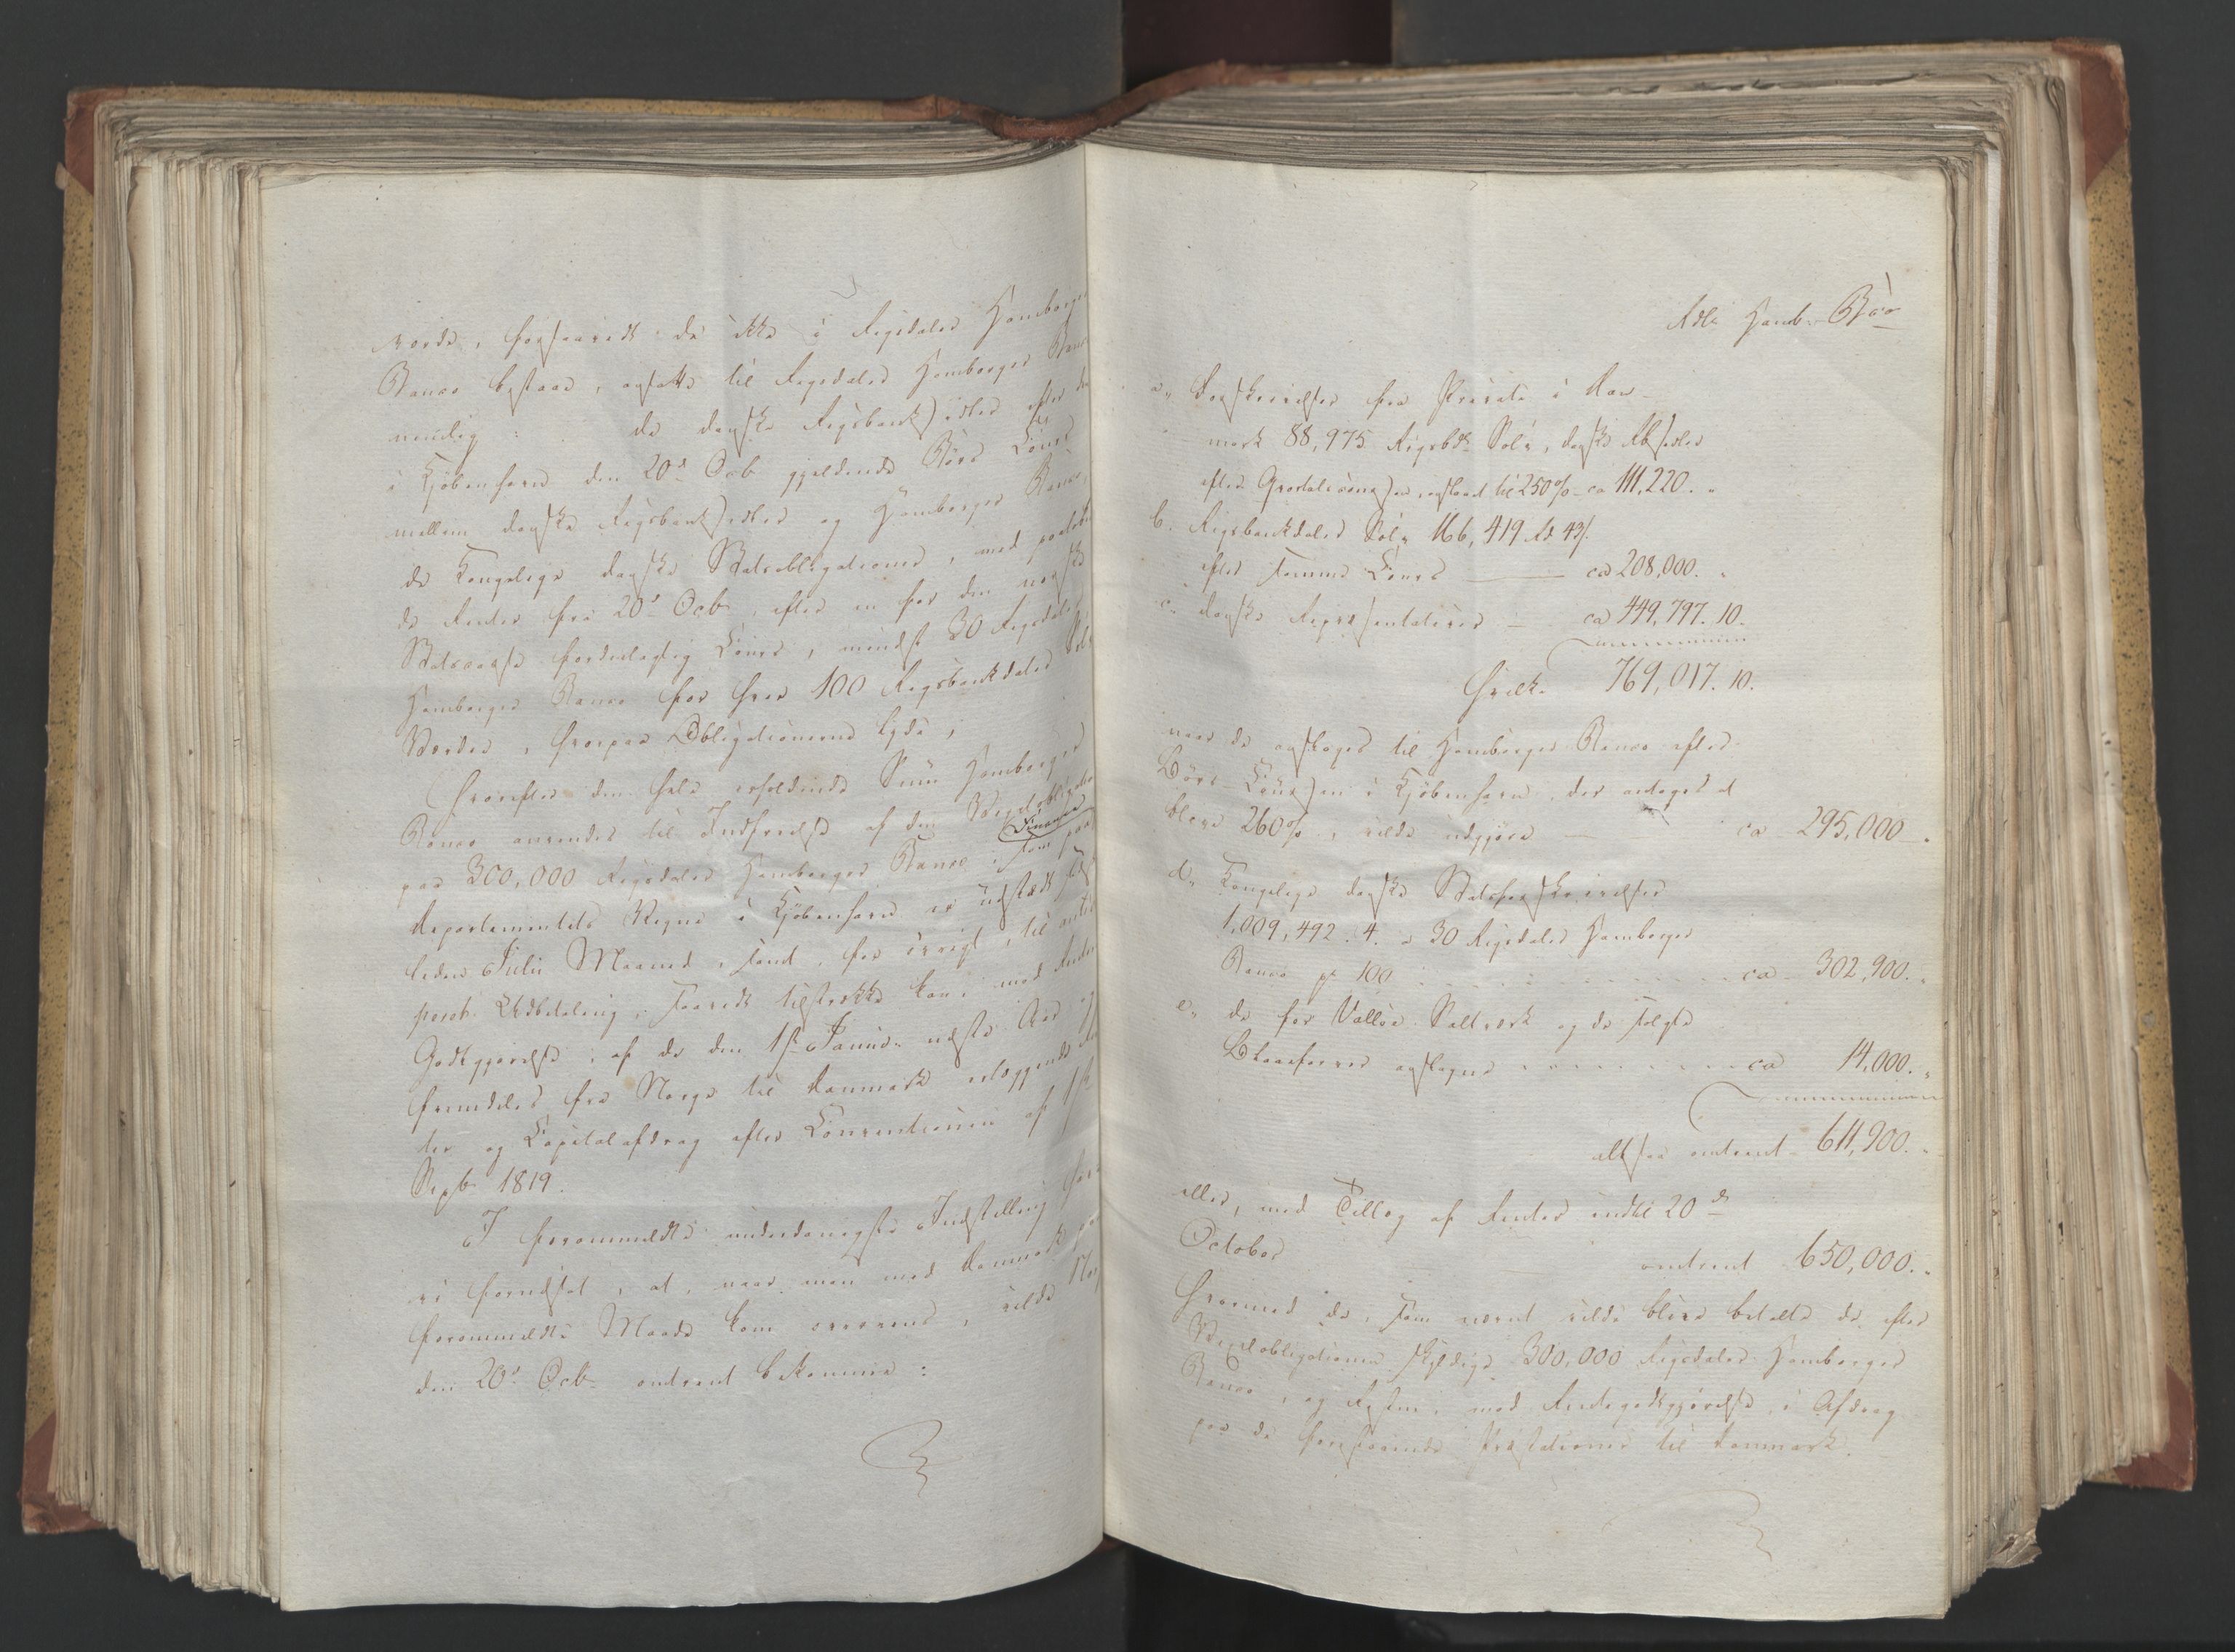 vorde, forsaavidt de ikke i Rigsdaler Hamborger
Banco bestaae, ansatte til Rigsdaler Hamborger Banco
nemlig: de danske Rigsbanksedler efter den
i Kjøbenhavn den 20d Octb gjeldende Børs Cours
mellem danske Rigsbanksedler og Hamborger Banco,
de Kongelige danske Statsobligationer, med paaløbende
de Renter fra 20d Octb, efter en for den norske
Statscasse fordeelagtig Cours, mindst 30 Rigsdaler
Hamborger Banco for hver 100 Rigsbankdaler Sølv
Værdie, hvorpaa Obligationerne lyde;
hvorefter den hele erholdende Sum Hamborger
Banco anvendes til Indfrielse af den Vexelobligation
paa 300,000 Rigsdaler Hamborger Banco, som paa Finance
Departementets Vegne i Kjøbenhavn er udstædt sidst-
leden Julii Maaned, samt, for øvrigt, til antici-
peret Udbetaling, saavidt tilstrække kan, med Rente
Godtgjørelse, af de den 1ste Januar næste Aar og
fremdeles fra Norge til Danmark erlæggende Ren-
ter og Capitalafdrag efter Conventionen af 1ste
Septb 1819.
I forommeldte underdanigste Indstilling have
vi forudsat, at, naar man med Danmark paa
forommeldte Maade kom overeens, vilde Norge
den 20d Octb omtrent bekomme:
Rdlr Hamb. Bco
a, Forskrivelser fra Private i Dan-
mark 88,975 Rigsbdlr Sølv, danske Rbsedler
efter Qvartalscoursen anslaaet til 250% ca 111,220. "
b. Rigsbankdaler Sølv 166,419 Rd 43s.
efter samme Cours — ca 208,000. "
c. danske Repræsentativer — ca 449,797. 10.
hvilke 769,017. 10.
naar de anslages til Hamborger Banco efter
Børs-Coursen i Kjøbenhavn, der antages at
blive 260%, vilde udgjøre — ca 295,000. "
d. Kongelige danske Statsforskrivelser
1,009,492. 4. a 30 Rigsdaler Hamborger
Banco pr 100 . . . . . . ca 302,900. "
e. de for Valløe Saltværk og de solgte
Blaafarver anslagne . . . . . . ca 14,000. "
altsaa omtrent 611,900. "
eller, med Tillæg af Renter indtil 20de
October omtrent 650,000. "
hvormed da, som nævnt vilde blive betalte de efter
Vexelobligationen skyldige 300,000 Rigsdaler Hamborger
Banco, og Resten, med Rentegodtgjørelse, i Afdrag
paa de forestaaende Præstationer til Danmark.